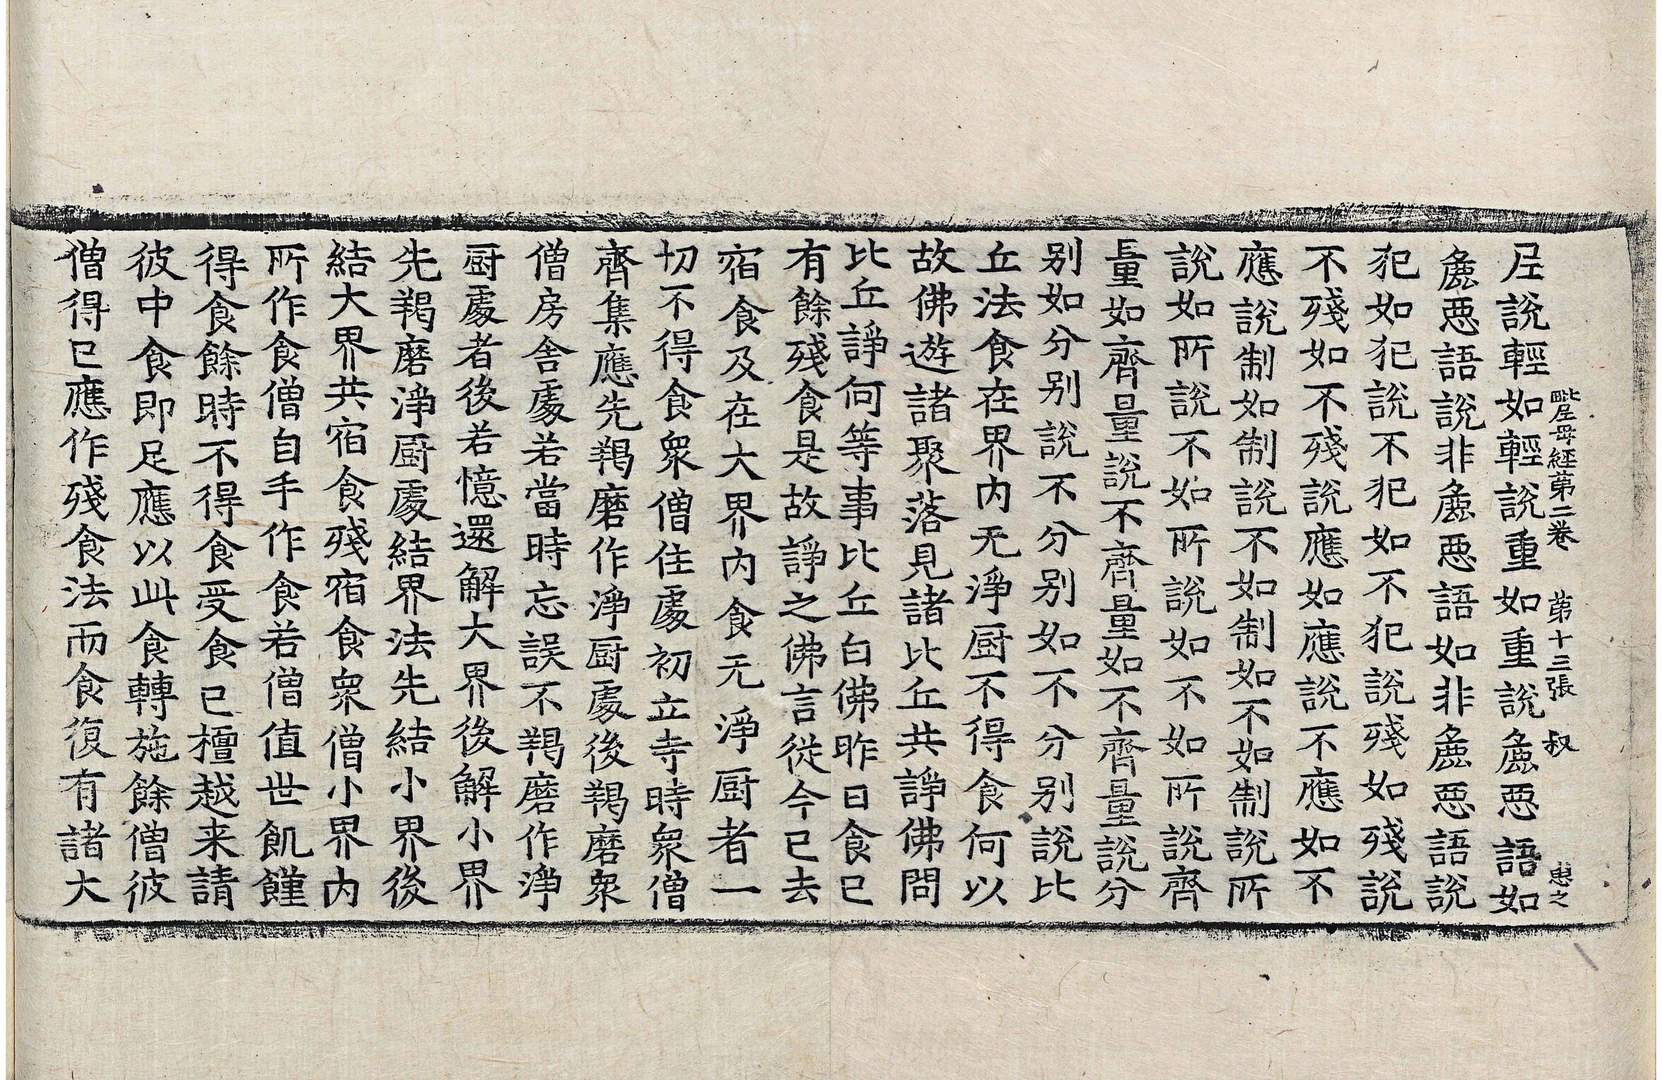 毗尼母經第二卷 第十三張 叔 惠之
尼說輕如輕說重如重說麁惡語如
麁惡語說非麁惡語如非麁惡語說
犯如犯說不犯如不犯說殘如殘說
不殘如不殘說應如應說不應如不
應說制如制說不如制如不如制說所
說如所說說不如所說如不如所說說齊
量如齊量說不齊量如不齊量說分
别如分别說不分别如不分别說比
丘法食在界內无淨厨不得食何以
故佛遊諸聚落見諸比丘共諍佛問
比丘諍何等事比丘白佛昨日食已
有餘殘食是故諍之佛言從今已去
宿食及在大界內食无淨厨者一
切不得食衆僧住處初立寺時衆僧
齊集應先羯磨作淨厨處後羯磨衆
僧房舍處若當時忘誤不羯磨作淨
厨處者後若憶還解大界後解小界
先羯磨淨厨處結界法先結小界後
結大界共宿食殘宿食衆僧小界內
所作食僧自手作食若僧值世飢饉
得食餘時不得食受食已檀越来請
彼中食即足應以此食轉施餘僧彼
僧得已應作殘食法而食復有諸大